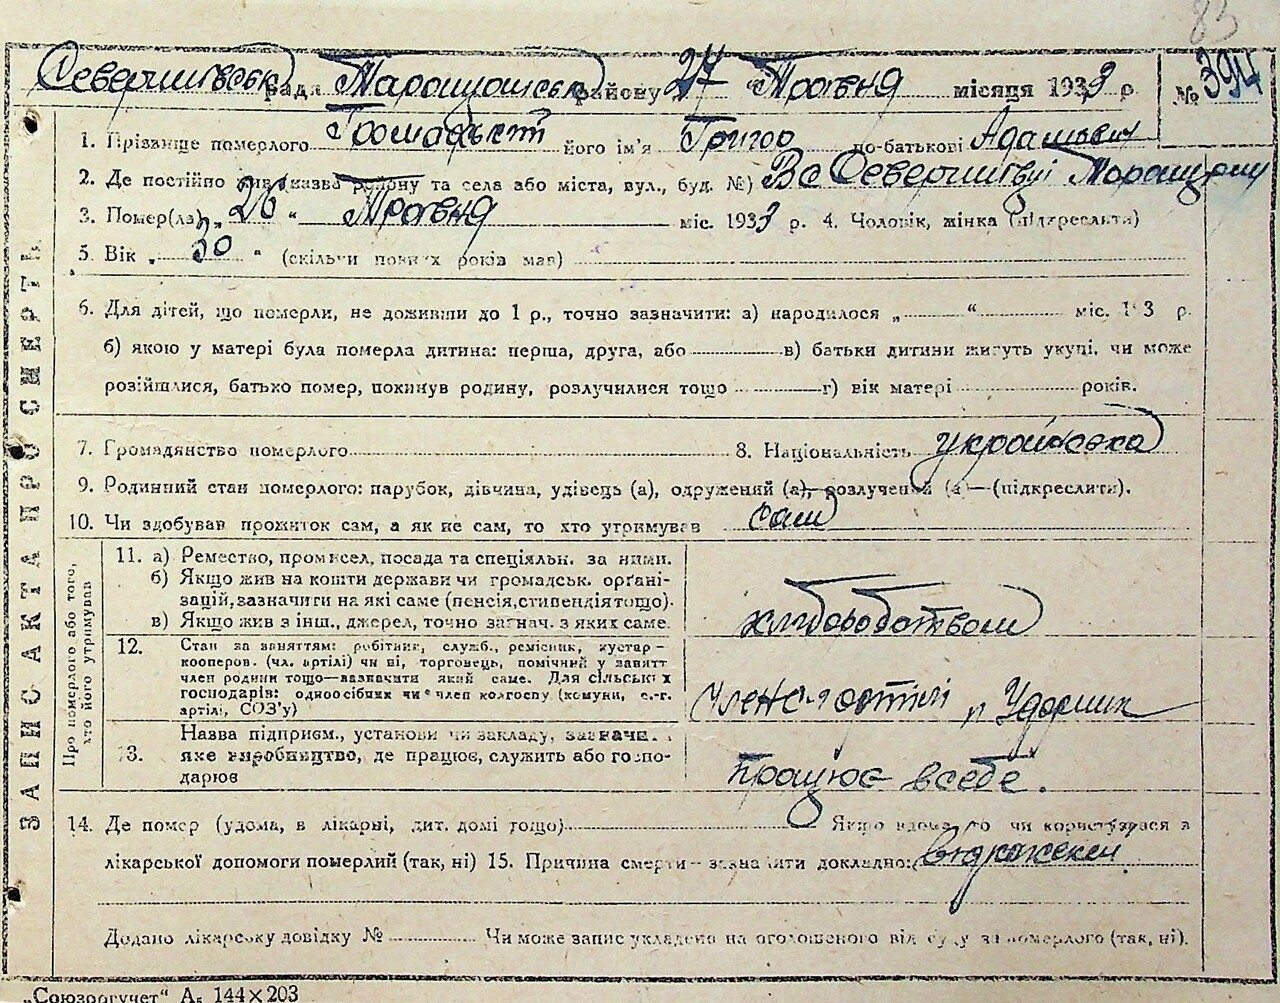 83
Северинівськ рада Таращанськ району 27 "Травня місяця 1933 р. № 394
1. Прізвище померлого Громадський його ім'я Григор по-батькові Адамович
2. Де постійно жив (назва району та села або міста, вул., буд. №) Вс Северинівці Таращан
3. Помер(ла) „ 26 " Травня міс. 1933 р. 4. Чоловік, жінка (підкреслити)
5. Вік „ 30 " (скільки повних років мав)
6. Для дітей, що померли, не доживши до 1 р., точно зазначити: а) народилося „ " міс. 193 р.
б) якою у матері була померла дитина: перша, друга, або в) батьки дитини живуть укупі, чи може
розійшлися, батько помер, покинув родину, розлучилися тощо г) вік матері років.
7. Громадянство померлого 8. Національність українська
9. Родинний стан померлого: парубок, дівчина, удівець (а), одружений (а), розлучений (а) — (підкреслити).
10. Чи здобував прожиток сам, а як не сам, то хто утримував сам
ЗАПИС АКТА ПРО СМЕРТЬ
Про померлого або того, хто його утримував
11. а) Ремество, промисел, посада та спеціяльн. за ними.
б) Якщо жив на кошти держави чи громадськ. орґані-
зацій, зазначити на які саме (пенсія, стипендія тощо).
в) Якщо жив з інш., джерел, точно зазнач. з яких саме.
хліборобством
12. Стан за заняттям: робітник, служб., ремісник, кустар-
кооперов. (чл. артілі) чи ні, торговець, помічний у занятт
член родини тощо—зазначити який саме. Для сільських
господарів: одноосібник чи член колгоспу (комуни, с.-г.
артілі, СОЗ'у)
член с-г артілі Ударник
13. Назва підприєм., установи чи закладу, зазначи.
яке виробництво, де працює, служить або госпо-
дарює
працює всебе.
14. Де помер (удома, в лікарні, дит. домі тощо) Якщо вдома, то чи користувався з
лікарської допомоги померлий (так, ні) 15. Причина смерти—зазначити докладно:
Додано лікарську довідку № Чи може запис укладено на оголошеного від суду за померлого (так, ні).
„Союзоргучет" А₅ 144×203